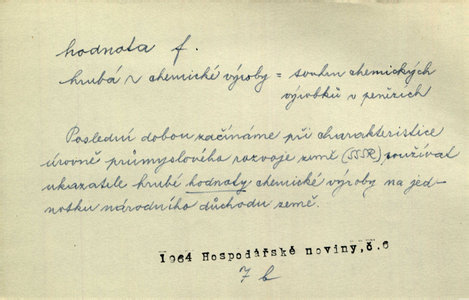 hodnota f.
hrubá ~ chemické výroby = souhrn chemických
výrobků v penězích
Poslední dobou začínáme při charakteristice
úrovně průmyslového rozvoje země (SSSR) používat
ukazatele hrubé hodnoty chemické výroby na jed-
notku národního důchodu země.
1964 Hospodářské noviny, č. 6
7 b